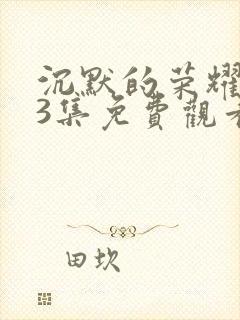 沉默的荣耀
3集免費觀看
田坎